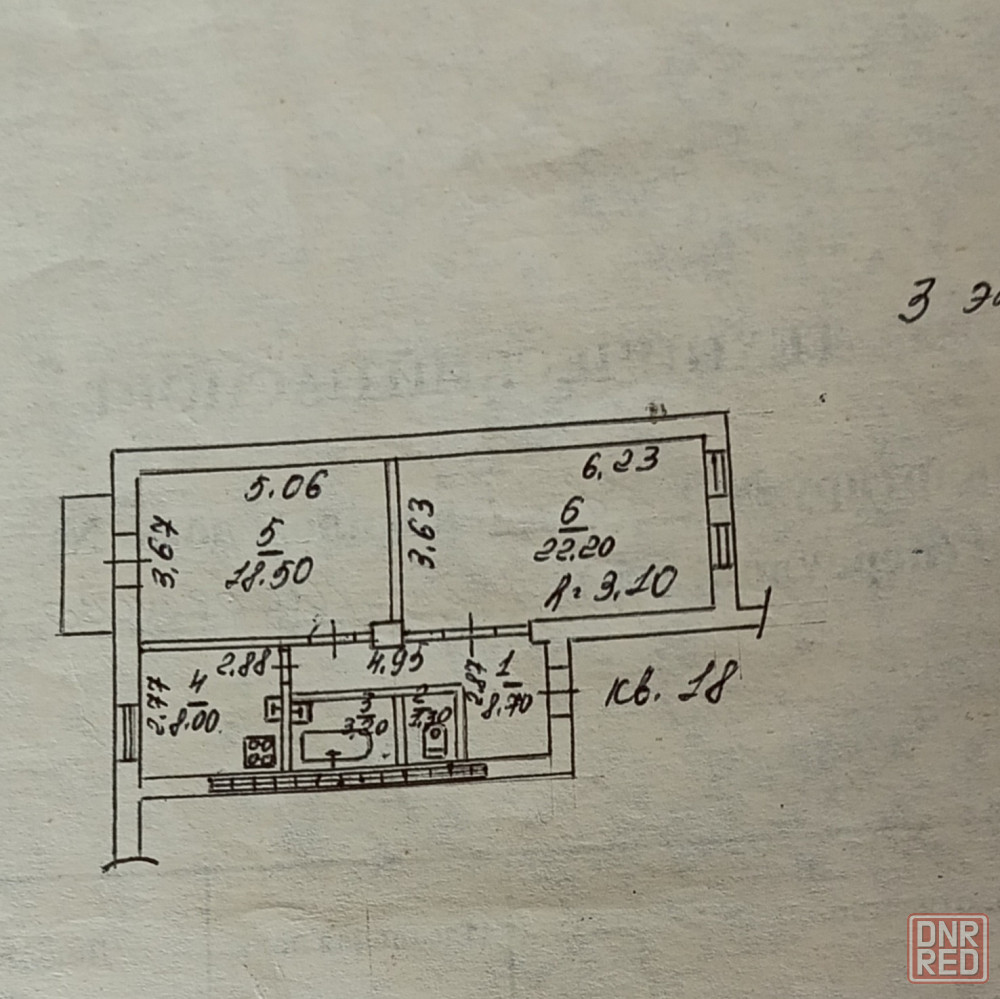 3
5.06
6,23
3,67
5
18.50
3,63
6
22.20
h=3,10
2.88
4.95
2,87
1
8.70
кв. 18
2,77
4
8.00
3
3,20
2
DNR
RED